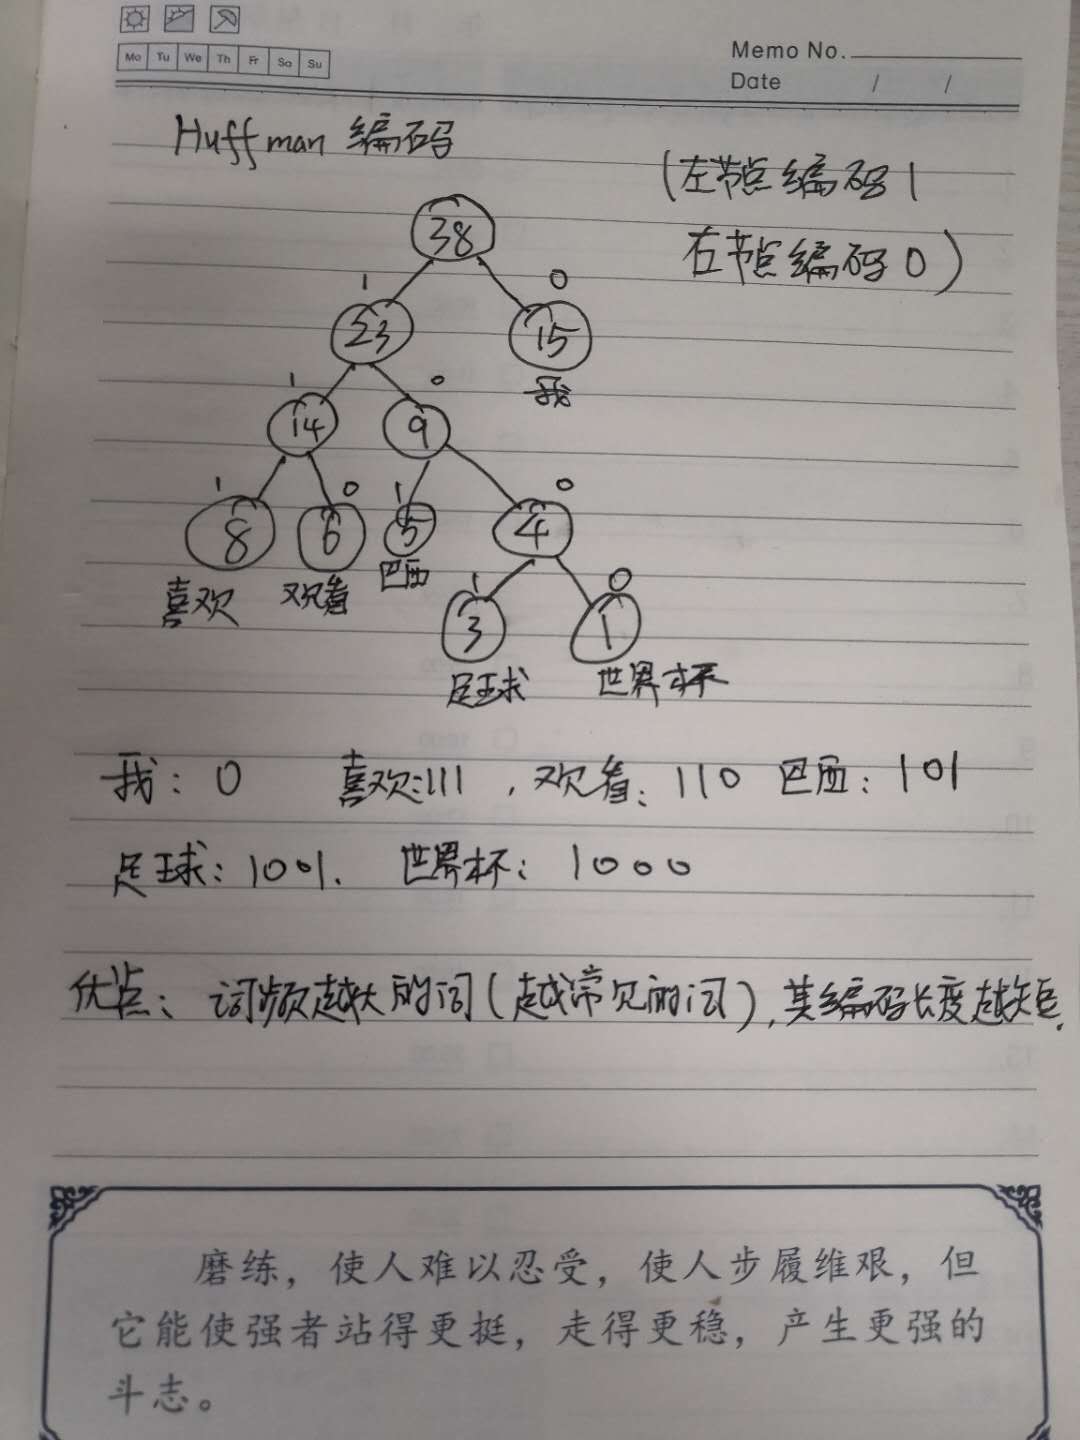 Mo Tu We Th Fr Sa Su
Memo No.
Date / /
Huffman 编码
(左节点编码1
右节点编码0)
38
1 0
23 15
我
1 0
14 9
1 0 1 0
8 6 5 4
喜欢 观看 巴西
1 0
3 1
足球 世界杯
我: 0 喜欢:111, 观看: 110 巴西: 101
足球: 1001. 世界杯: 1000
优点: 词频越大的词(越常见的词), 其编码长度越短.
磨练，使人难以忍受，使人步履维艰，但
它能使强者站得更挺，走得更稳，产生更强的
斗志。